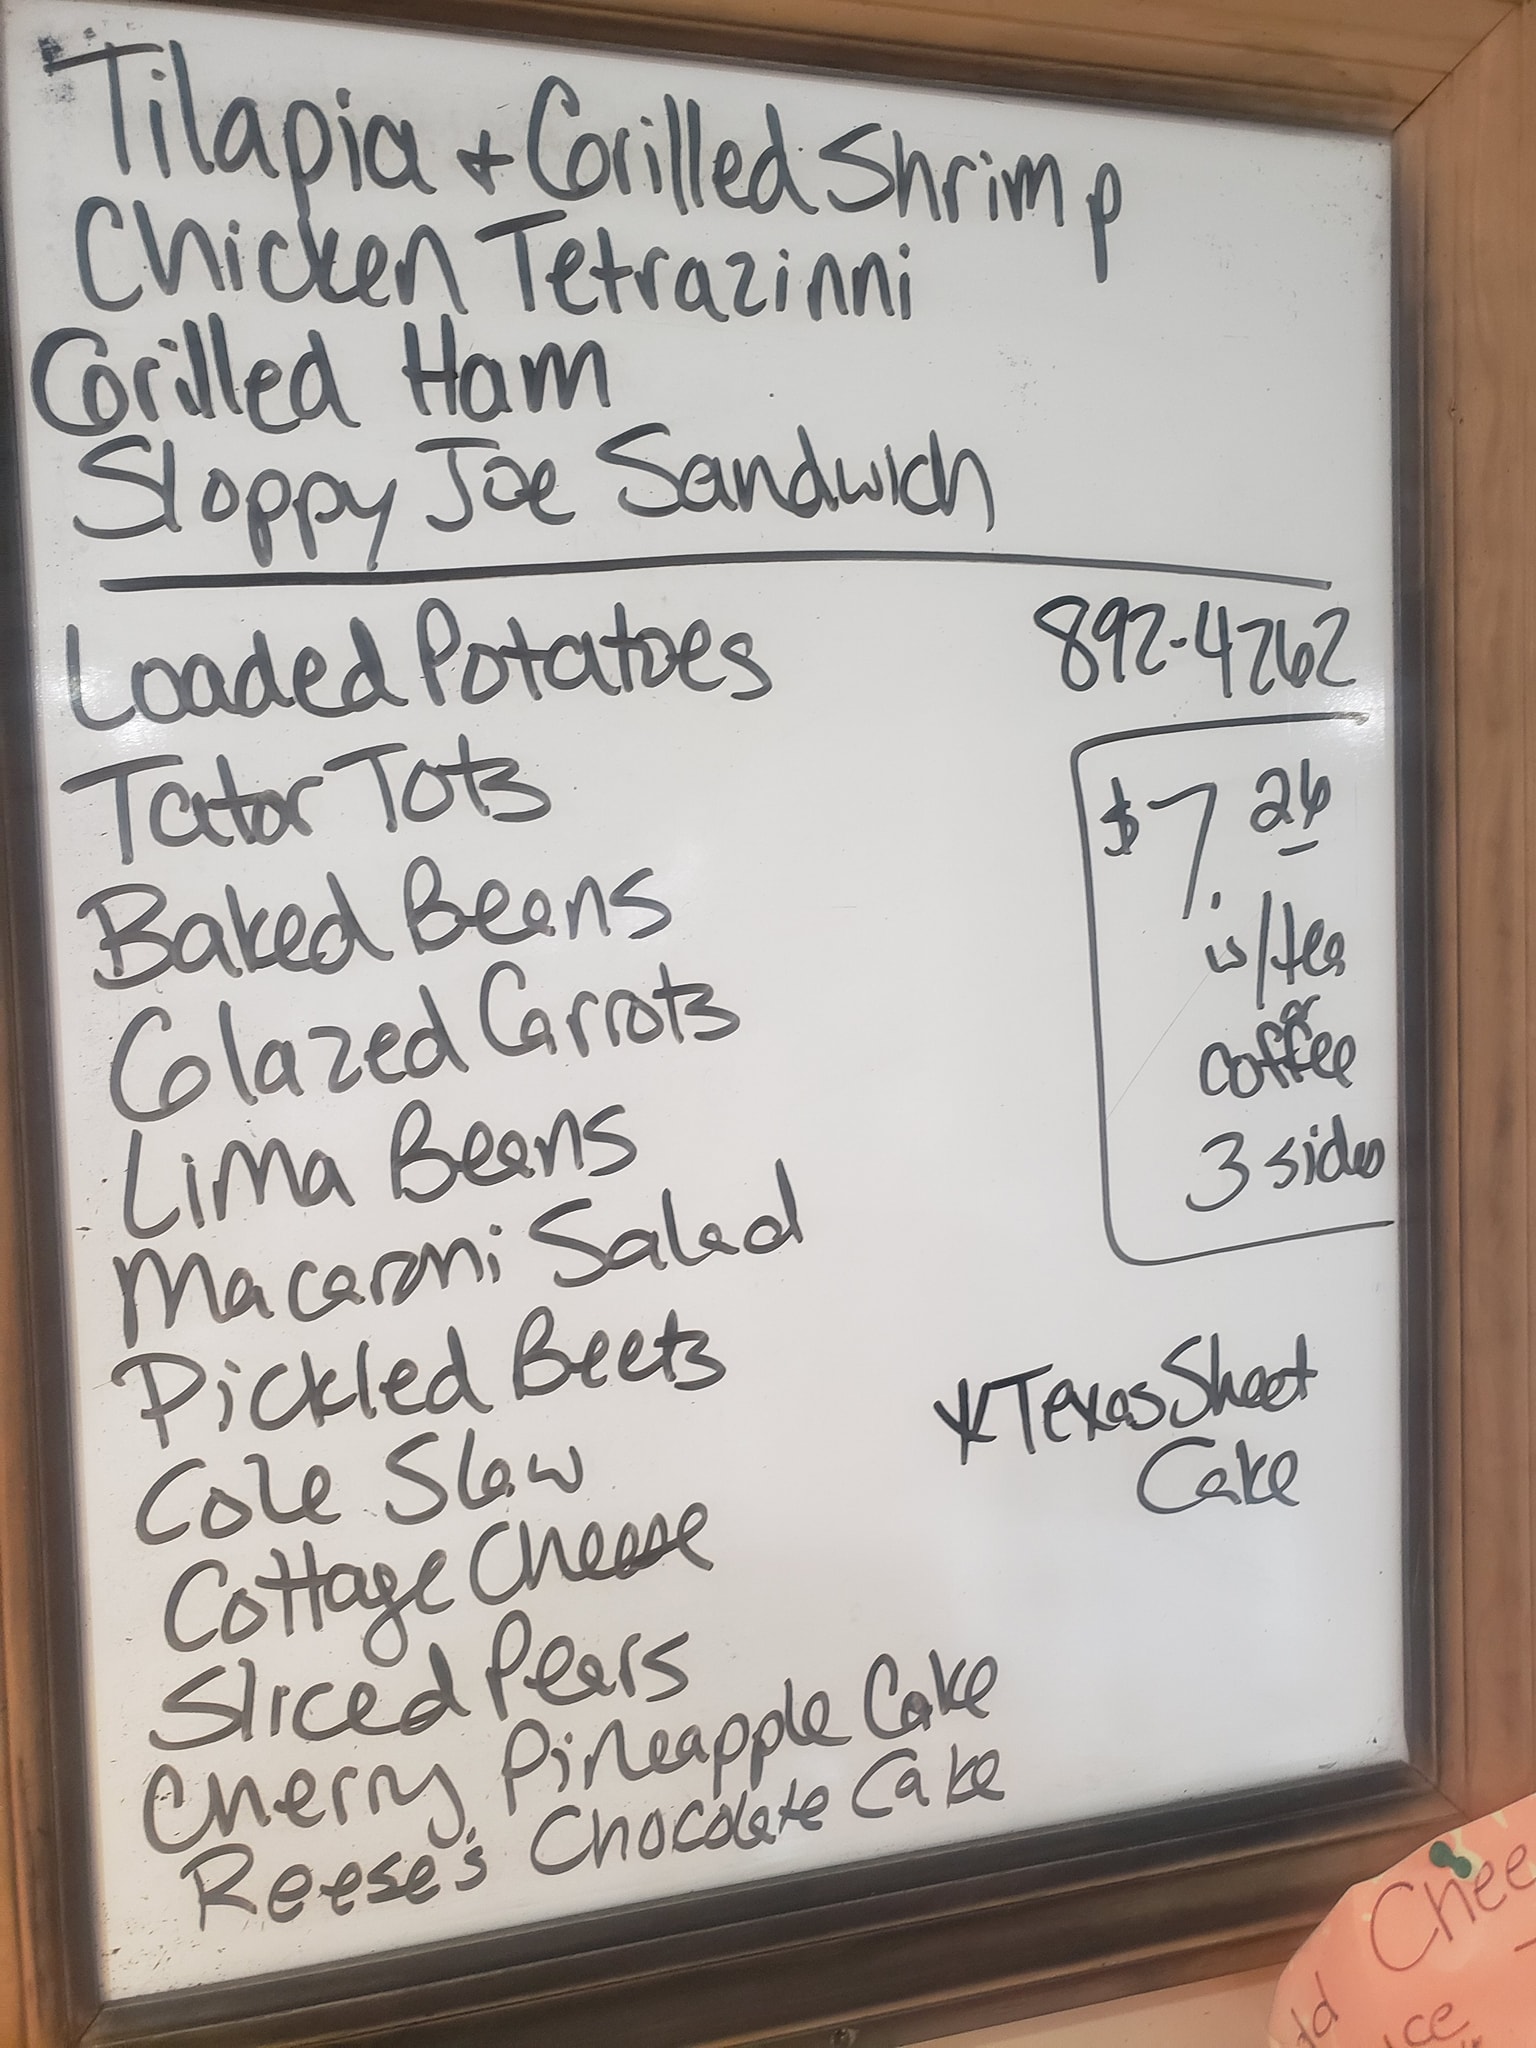 Tilapia + Grilled Shrimp
Chicken Tetrazinni
Grilled Ham
Sloppy Joe Sandwich
Loaded Potatoes
Tator Tots
Baked Beans
Glazed Carrots
Lima Beans
Macaroni Salad
Pickled Beets
Cole Slaw
Cottage Cheese
Sliced Pears
Cherry Pineapple Cake
Reese's Chocolate Cake
892-4262
$7.26
w/tea
or
coffee
3 sides
*Texas Sheet
Cake